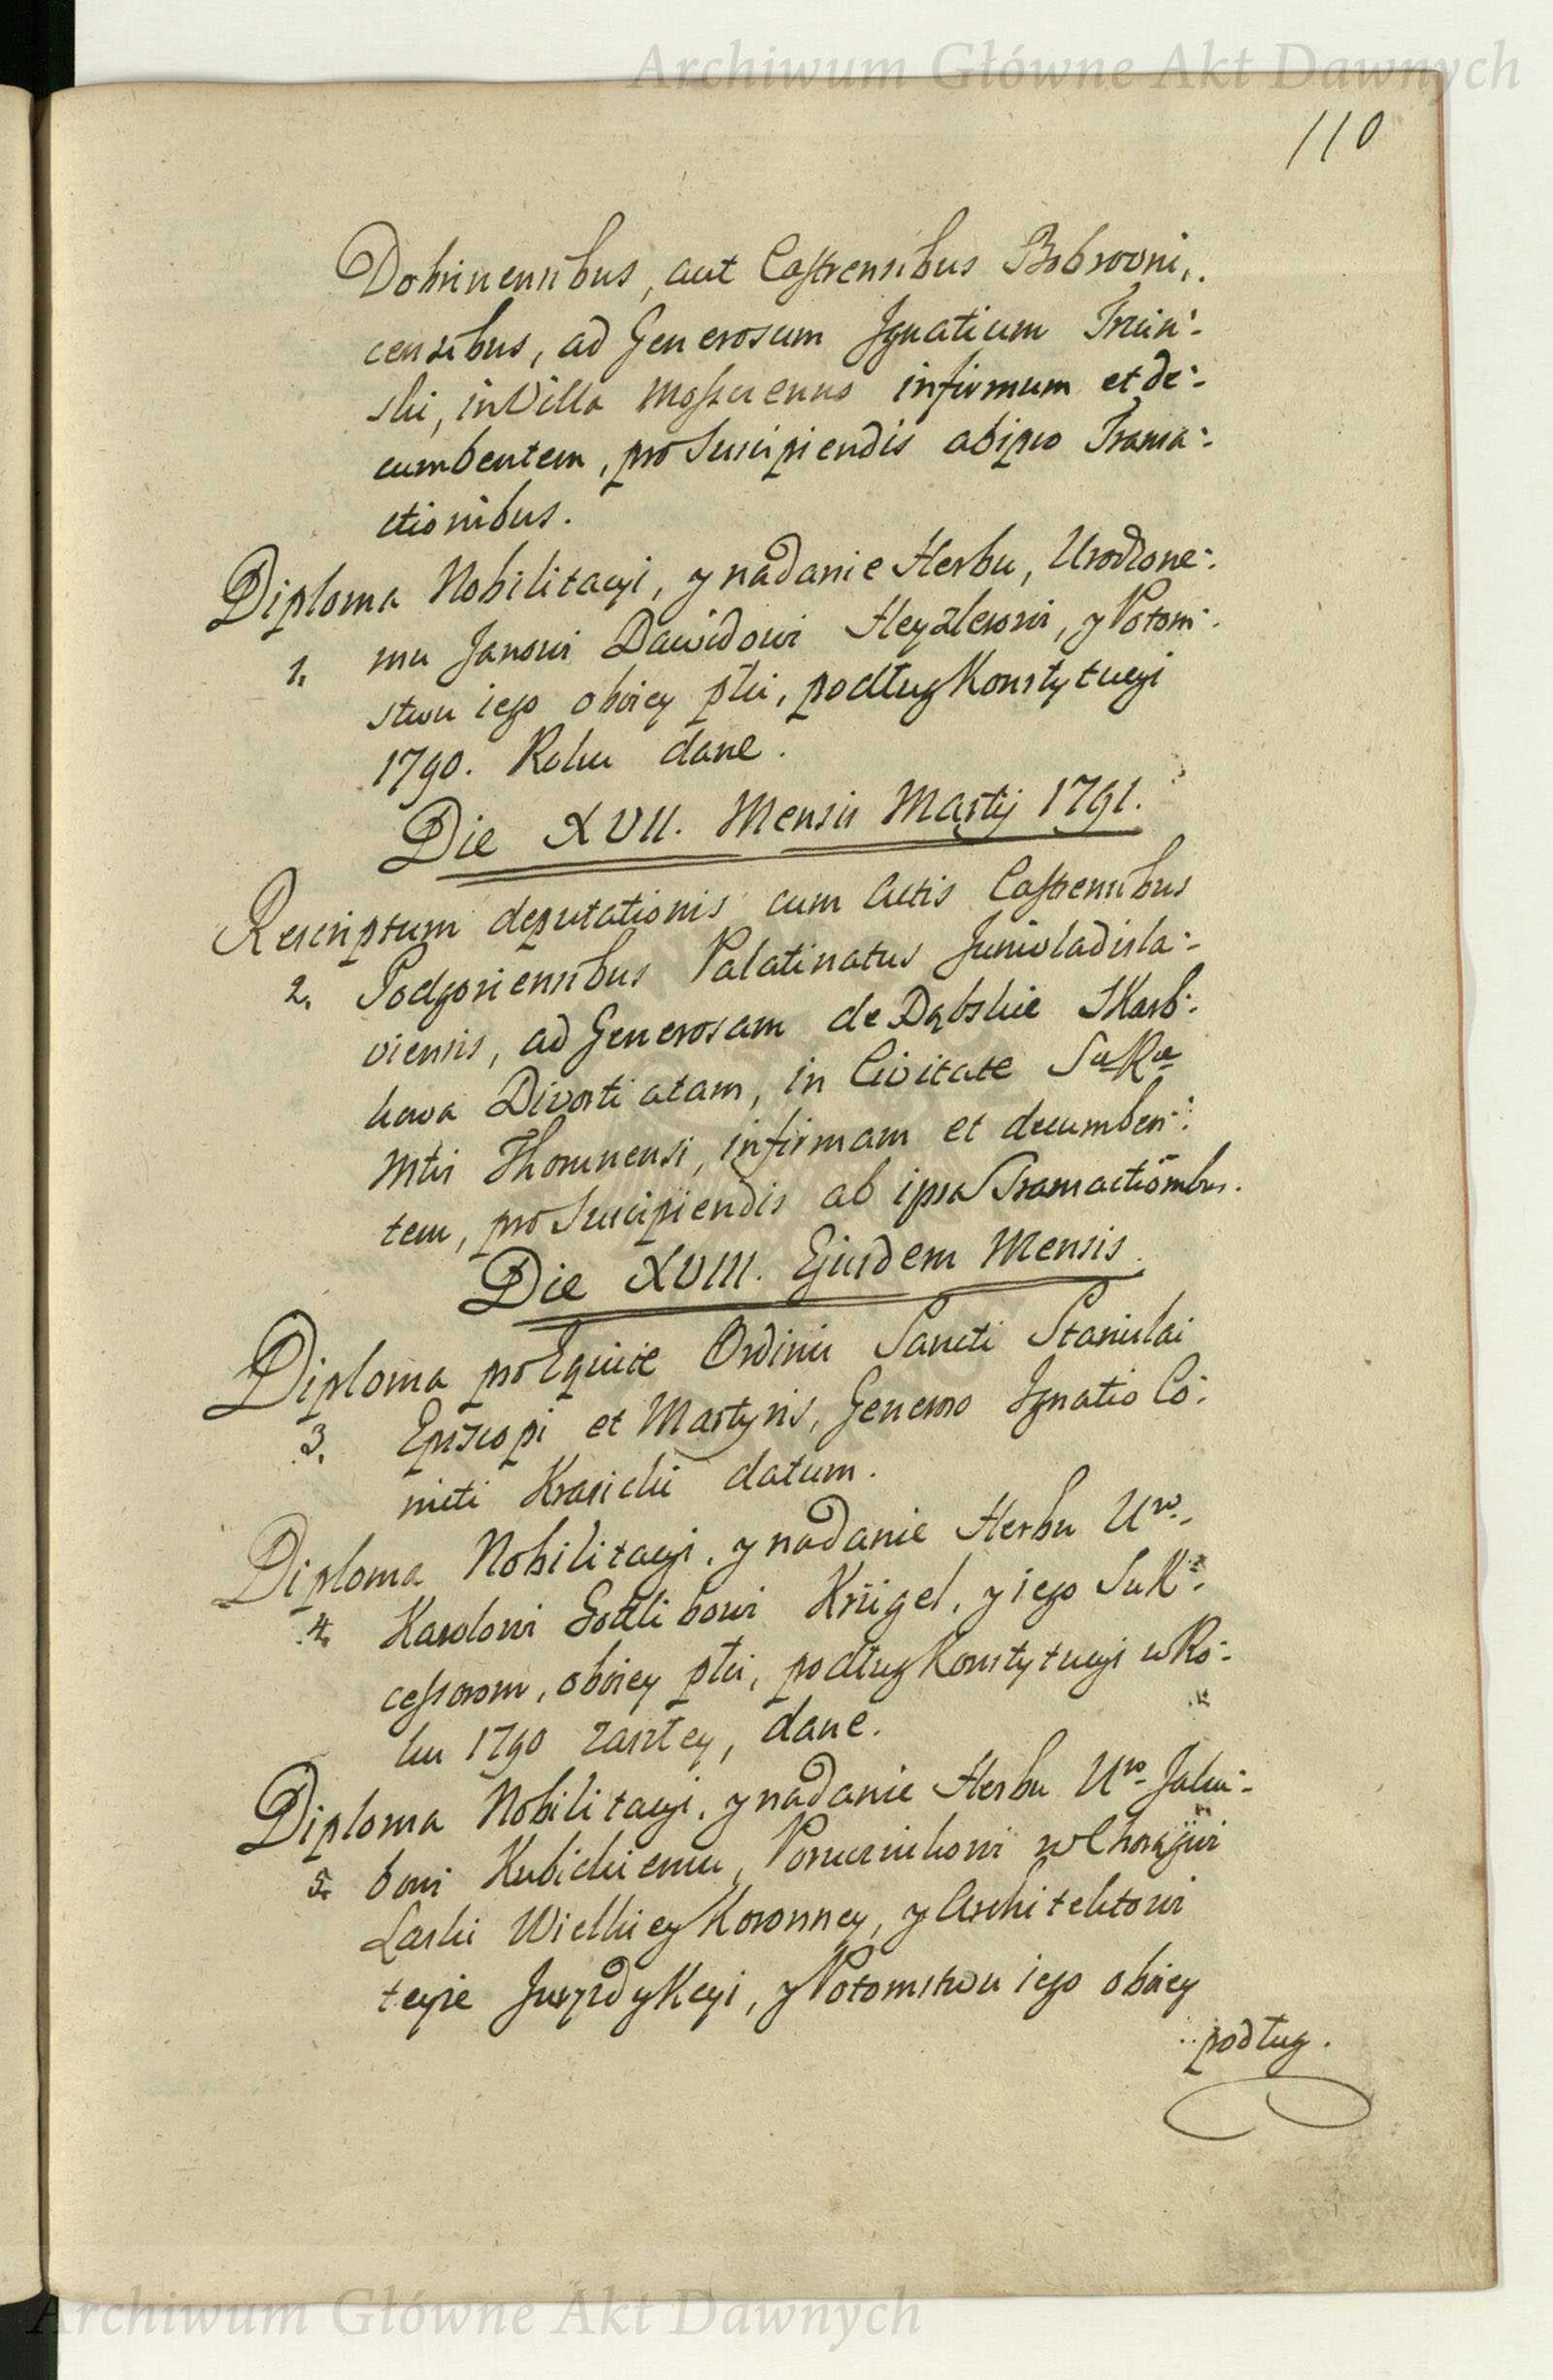 Archiwum Główne Akt Dawnych
110
Dobrinensibus, aut Castrensibus Bobrovni,.
censibus, ad Generosum Ignatium
ski, in Villa infirmum et de:-
cumbentem, pro Suscipiendis ab ipso Transa:-
ctionibus.
Diploma Nobilitacyi, y nadanie Herbu, Urodzone:-
1. mu Janowi Dawidowi Heyzlerowi, y Potom:-
stwu iego oboiey płci, podług Konstytucyi
1790. Roku dane.
Die XVII. Mensis Martij 1791.
Rescriptum deputationis cum Actis Castrensibus
2. Podgoriensibus Palatinatus Junivladisla:-
viensis, ad Generosam de Dąbskie Skarb:-
kowa Divortiatam, in Civitate Sae Rae
Mtis Thorunensi, infirmam et decumben:-
tem, pro Suscipiendis ab ipsa Transactionibus.
Die XVIII. Ejusdem Mensis
Diploma pro Equite Ordinis Sancti Stanislai
3. Episcopi et Martyris, Generoso Ignatio Co:-
miti Krasicki datum.
Diploma Nobilitacyi, y nadanie Herbu Uro.-
4. Karolowi Gottlibowi Krügel, y iego Suk:-
cessorom, oboiey płci, podług Konstytucyi w Ro:-
ku 1790 zaszłey, dane.
Diploma Nobilitacyi, y nadanie Herbu Uro- Jaku:-
5. bowi Kubickiemu, Porucznikowi w Chorągwi
Laski Wielkiey Koronney, y Architektowi
teyże Juryzdykcyi, y Potomstwu iego oboiey
podług.
Archiwum Główne Akt Dawnych